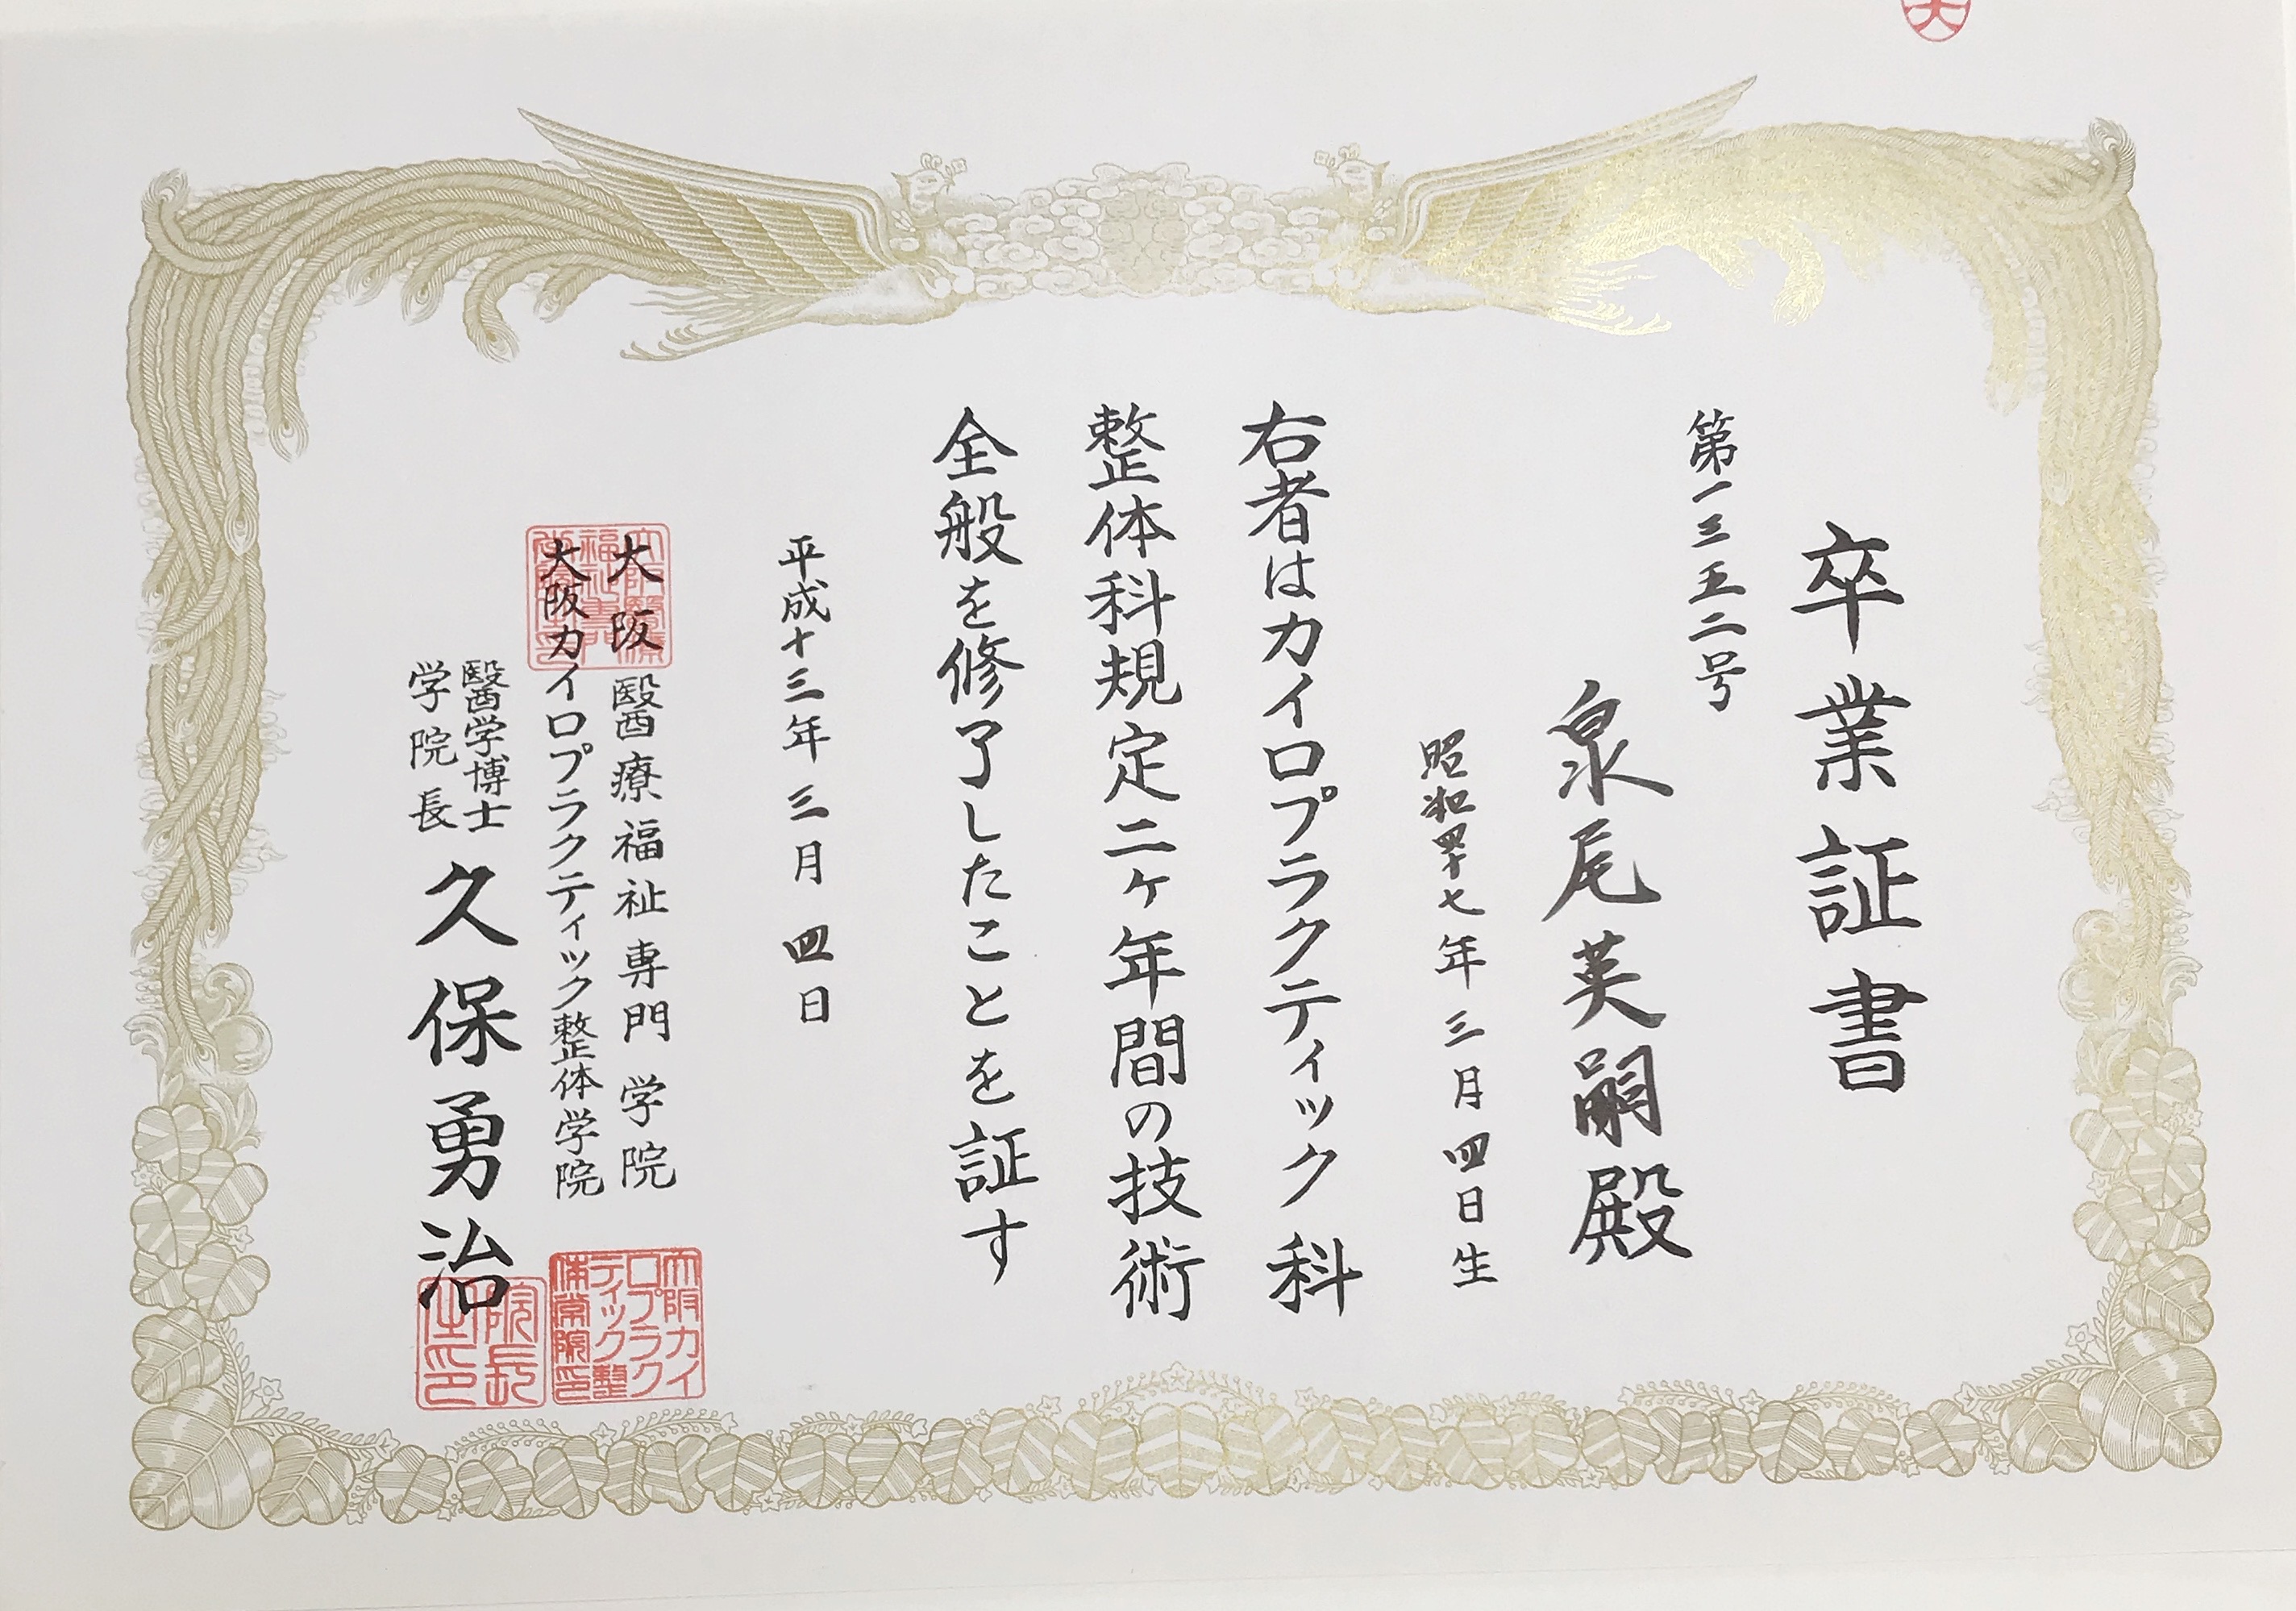 卒業証書
第一三五二号
泉尾英嗣殿
昭和四十七年三月四日生
右者はカイロプラクティック科
整体科規定二ヶ年間の技術
全般を修了したことを証す
平成十三年三月四日
大阪醫療福祉専門学院
大阪カイロプラクティック整体学院
醫学博士
学院長
久保勇治
大阪カイ
ロプラク
ティック整
体学院印
院長
之印